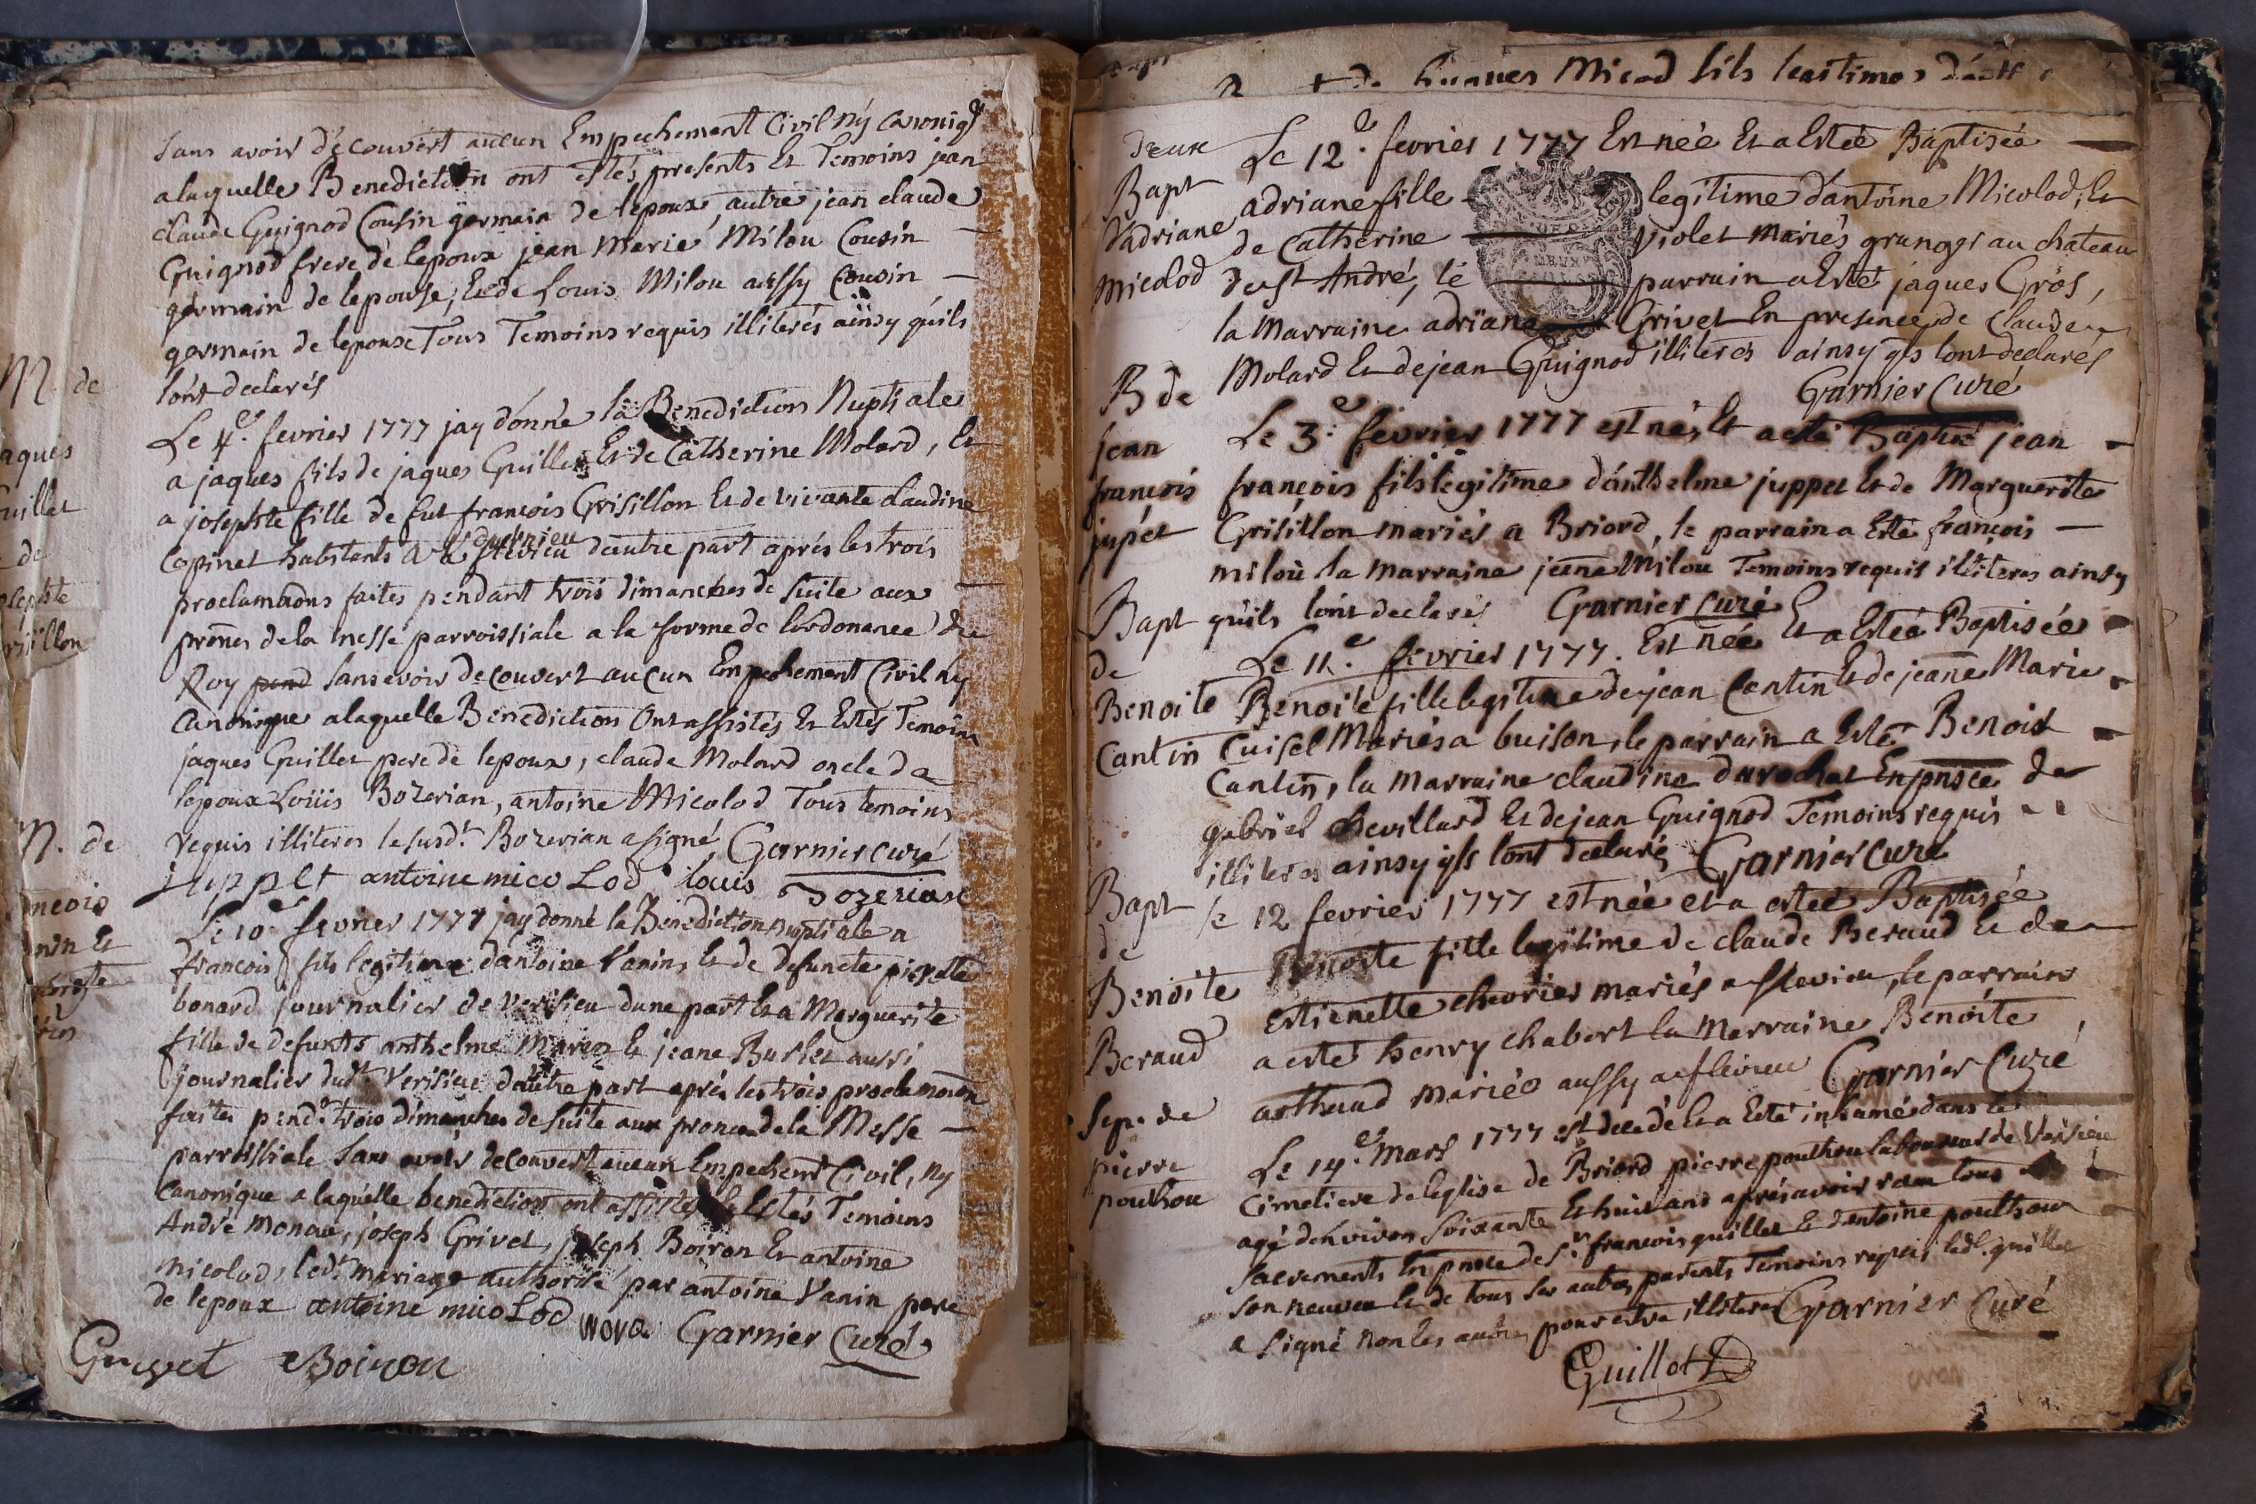 sans avoir découvert aucun Empechement Civil ny canoniq
alaquelle Benediction ont estés presents Et Temoins jean
claude Guignod Cousin germain de lepoux, autre jean claude
Guignod frere de lepoux jean Marie Milou Cousin
germain de lepouse, Et de Louis Milou aussy Cousin
germain de lepouse Tous Temoins requis illiterés ainsy quils
lont declarés
M. de
aques
uillet
de
osephte
risillon
Le 4e. fevrier 1777 jay donné la Benediction Nuptiale
a jaques fils de jaques Guillet Et de Catherine Molard, Et
a josephte fille de fut françois Grisillon Et de vivante claudine
Copinet habitants a dautre part aprés les trois
proclamaõns faites pendant trois dimanches de suite aux
prônes de la messe parroissiale a la forme de lordonance du
Roy pend sans avoir decouvert aucun Empechement Civil ny
canonique alaquelle Benediction Ont assistés Et Estés Temoins
jaques Guillet pere de lepoux, claude Molard oncle de
lepoux Loüis Bozerian, antoine Micolod Tous temoins
requis illiteres le susdt. Bozerian a signé Garnier curé
juppet antoine mico Lod louis Bozerian
M. de
ncois
nin Et
Le 10e fevrier 1777 jay donné la Benediction nuptiale a
francois fils legitime dantoine Vanin, Et de defuncte pierrette
bonard journalier de verisieu dune part Et a Marguerite
fille de defunts anthelme Et jeane Burlet aussi
journalier dudt. Verisieu dautre part aprés les trois proclamaõns
faites pendt. trois dimanches de suite aux prones de la Messe
parroissiale sans avoir decouvert aucun Empechemt Civil, ny
Canonique alaquelle benediction ont assistés Et Estés Temoins
André monave, joseph Grivet, joseph Boiron Et antoine
micolod, ledt. mariage authorisé par antoine Vanin pere
de lepoux antoine mico Lod Garnier Curé
Grivet Boiron
hugues Micod fils legitime
Deux
Bapt
dadriane
micolod
Le 12e. fevrier 1777 Est née Et a Estée Baptisée
adriane fille legitime dantoine Micolod, Et
de Catherine violet mariés granger au chateau
de St André, le parrain a Esté jaques Gros,
la Marraine adriane Grivet En presence de Claude
Molard Et de jean Guignod illiteres ainsy qls lont declarés
Garnier Curé
B de
jean
françois
jupét
Le 3e. fevrier 1777 est né, Et a esté Baptisé jean
françois fils legitime danthelme juppet Et de Marguerite
Grisillon mariés a Briord, le parrain a Esté françois
milou la marraine jeane Milou Temoins requis illiteres ainsy
quils lont declarés Garnier Curé
Bapt
de
Benoite
Cantin
Le 11e. fevrier 1777. Est née Et a Estée Baptisée
Benoite fille legitime de jean Cantin Et de jeane Marie
Cuisel Mariés a buison, le parrain a Esté Benoit
Cantin, la marraine claudine durochat En pnsce de
gabriel chevillard Et de jean Guignod Temoins requis
illiteres ainsy qls lont declarés Garnier Curé
Bapt
de
Benoite
Beraud
le 12 fevrier 1777 est née et a estée Baptisée
Benoite fille legitime de claude Beraud Et de
estienette chevrier mariés a flevieu, le parrain
a esté henry chabert la Marraine Benoite
arthaud mariéé aussy a flevieu Garnier Curé
Sep. de
pierre
pouthou
Le 14e. Mars 1777 est decedé Et a Esté inhumé dans le
Cimetiere de leglise de Briord pierre pouthou laboureur de Verisieu
agé denviron soixante Et huit ans aprés avoir recu tous
sacrements En pnsce de Sr. francois guillet Et dantoine pouthou
son neuveu Et de tous ses autres parents Temoins requis ledt. guillet
a signé non les autres pour estre illiteres Garnier Curé
Guillot